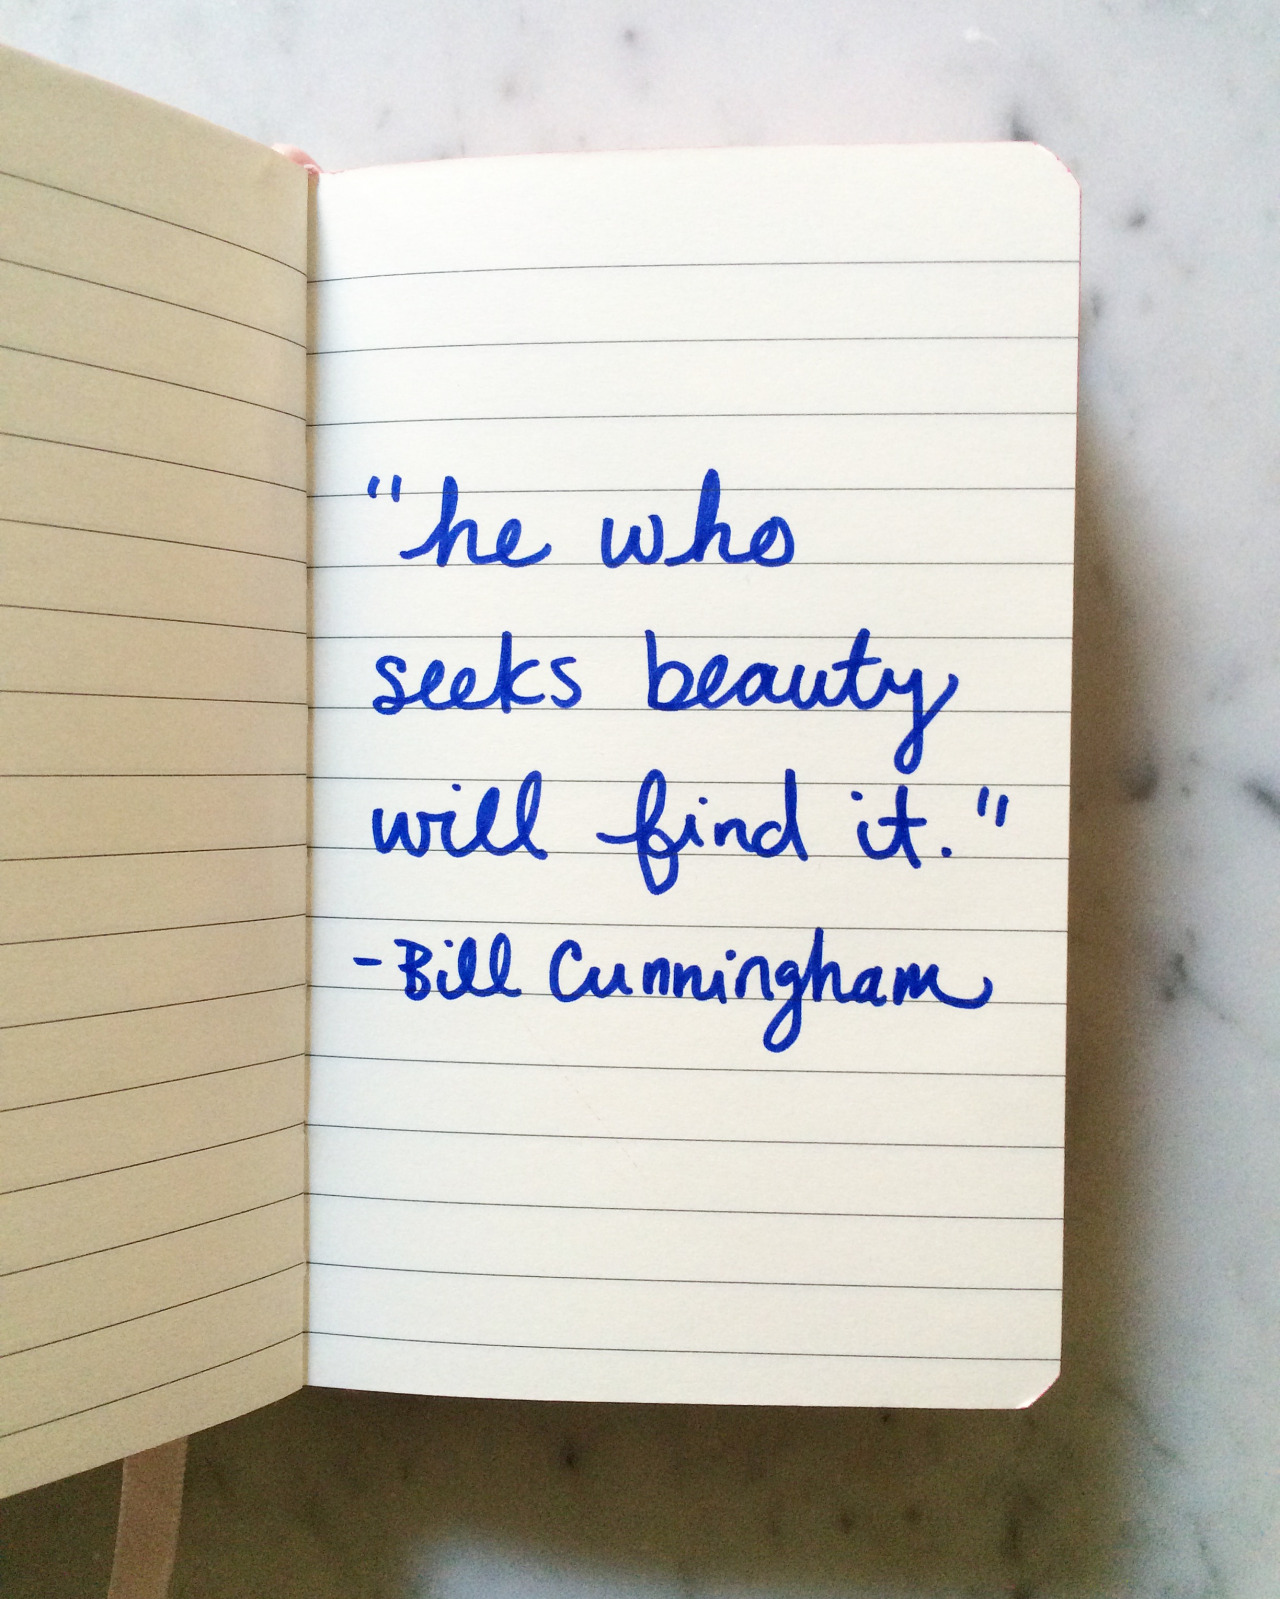 "he who
seeks beauty
will find it."
-Bill Cunningham